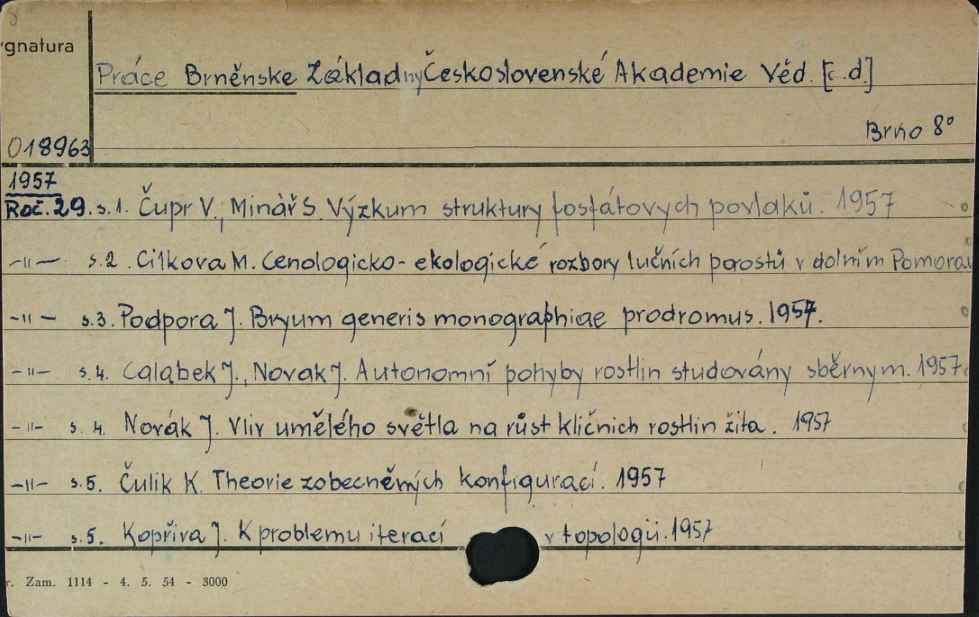 gnatura
Práce Brněnske Základny Československé Akademie Věd. [c.d.]
Brno 8°
018963
1957
Roč. 29. s.1. Čupr V., Minàř S. Výzkum struktury fosfátovych povlaků. 1957
-"- s.2. Cilkova M. Cenologicko-ekologické rozbory lučních porostů v dolním Pomorav
-"- s.3. Podpora J. Bryum generis monographiae prodromus. 1957.
-"- s.4. Calabek J., Novak J. Autonomní pohyby rostlin studovány sběrnym. 1957
-"- s.4. Novák J. Vliv umělého světla na růst kličnich rostlin žita. 1957
-"- s.5. Čulik K. Theorie zobecněných konfigurací. 1957
-"- s.5. Kopřiva J. K problemu iterací v topologii. 1957
r. Zam. 1114 - 4. 5. 54 - 3000